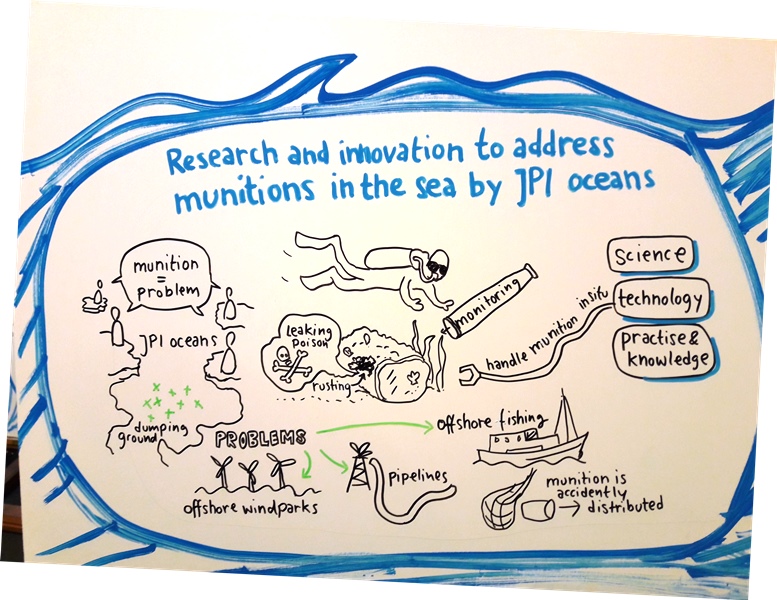 Research and innovation to address
munitions in the sea by JPI oceans
munition
=
problem
JPI oceans
dumping
ground
leaking
poison
rusting
monitoring
handle munition insitu
science
technology
practise &
knowledge
PROBLEMS
offshore windparks
pipelines
offshore fishing
munition is
accidently
→ distributed